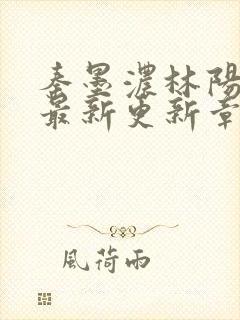 秦墨濃林陽
最新更新章
風荷雨